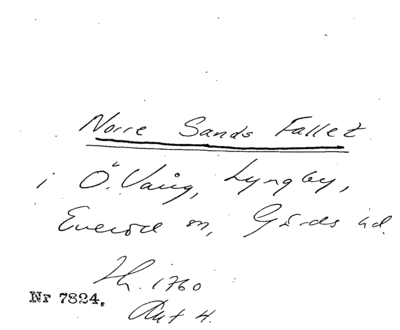 Norre Sands Fallet
i Ö. Vång, Lyngby,
Everöd sn, Gärds hd.
Lh. 1760
Nr 7824.
Akt 4.